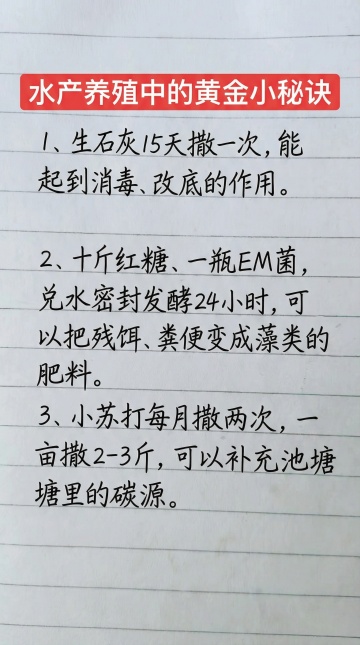 水产养殖中的黄金小秘诀
1、生石灰15天撒一次，能
起到消毒、改底的作用。
2、十斤红糖、一瓶EM菌，
兑水密封发酵24小时，可
以把残饵、粪便变成藻类的
肥料。
3、小苏打每月撒两次，一
亩撒2-3斤，可以补充池塘
塘里的碳源。